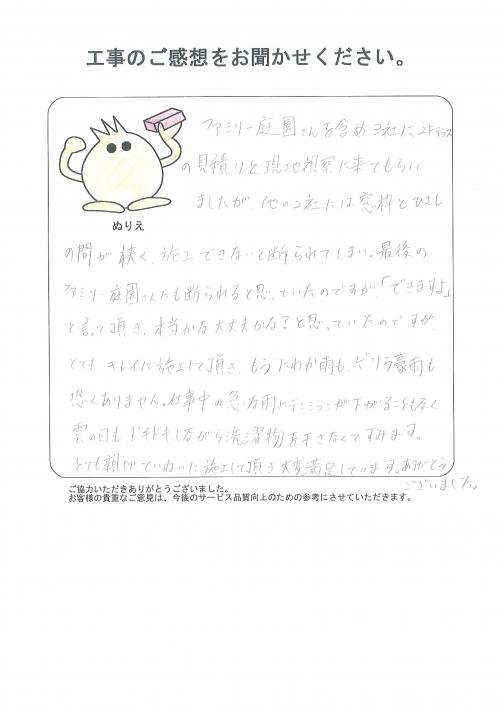 工事のご感想をお聞かせください。
ファミリー庭園さんを含め3社に、2Fテラス
の見積りと現地視察に来てもらい
ましたが、他の2社には窓枠とひさし
ぬりえ
の間が狭く、施工できないと断られてしまい。最後の
ファミリー庭園さんにも断られると思っていたのですが「できますよ」
と言って頂き、本当かな大丈夫かな?と思っていたのですが、
とても、キレイに施工して頂き、もうにわか雨も、ゲリラ豪雨も
恐くありません。仕事中の急な雨にテンションが下がることもなく
雲の日も、ドキドキしながら洗濯物を干さなくてすみます。
とても親切でていねいに施工して頂き大変満足しています。ありがとう
ございました。
ご協力いただきありがとうございました。
お客様の貴重なご意見は、今後のサービス品質向上のための参考にさせていただきます。